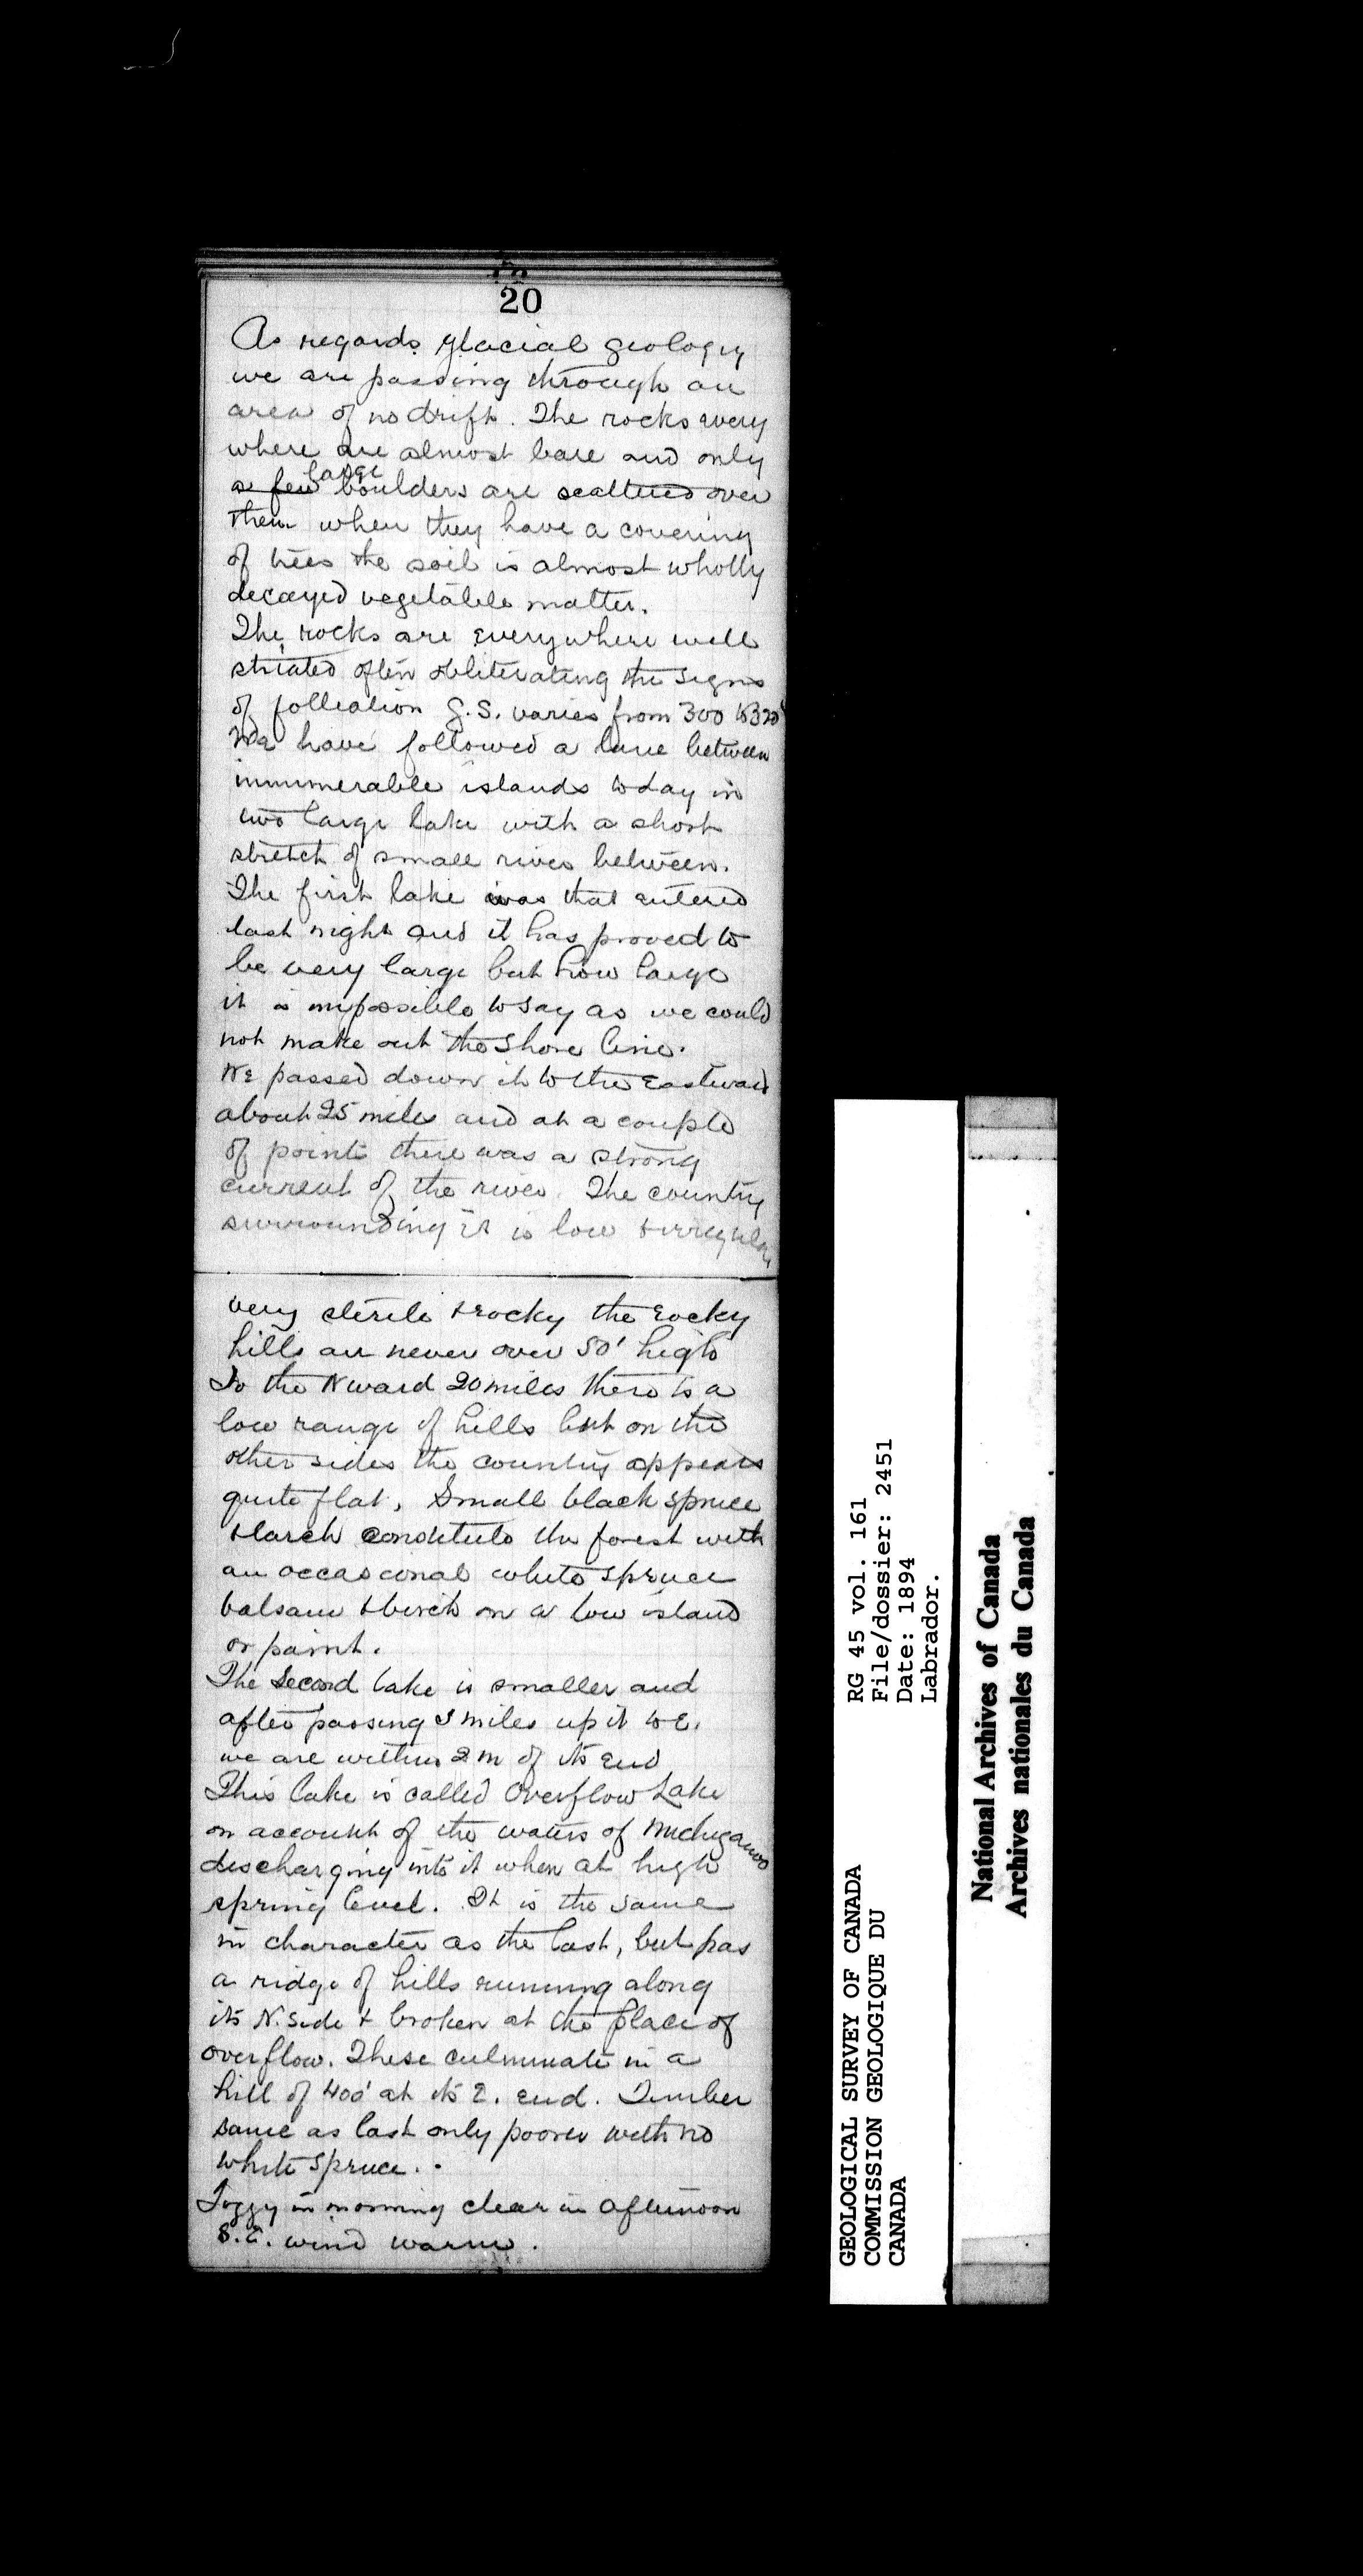 20
As regards glacial geology
we are passing through an
area of no drift. The rocks every
where are almost bare and only
a few large boulders are scattered over
them when they have a covering
of trees the soil is almost wholly
decayed vegetable matter.
The rocks are everywhere well
striated often obliterating the signs
of folliation G.S. varies from 300 to 320°
We have followed a lane between
innumerable islands today in
two large lake with a short
stretch of small river between.
The first lake was that entered
last night and it has proved to
be very large but how large
it is impossible to say as we could
not make out the shore line.
We passed down it to the Eastward
about 25 miles and at a couple
of points there was a strong
current of the river. The country
surrounding it is low & irregular,
very sterile & rocky the rocky
hills are never over 50' high
To the Nward 20 miles there is a
low range of hills but on the
other sides the country appears
quite flat. Small black spruce
& larch constitute the forest with
an occasional white spruce
balsam & birch on a low island
or point.
The second lake is smaller and
after passing miles up it to E.
we are within 2 m of its end
This lake is called Overflow Lake
on account of the waters of Michigamo
discharging into it when at high
spring level. It is the same
in character as the last, but has
a ridge of hills running along
its N. side & broken at the place of
overflow. These culminate in a
hill of 400' at its E. end. Timber
same as last only poorer with no
white spruce.
Foggy in morning clear in afternoon
S.E. wind warm.
GEOLOGICAL SURVEY OF CANADA
COMMISSION GEOLOGIQUE DU
CANADA
RG 45 vol. 161
File/dossier: 2451
Date: 1894
Labrador.
National Archives of Canada
Archives nationales du Canada